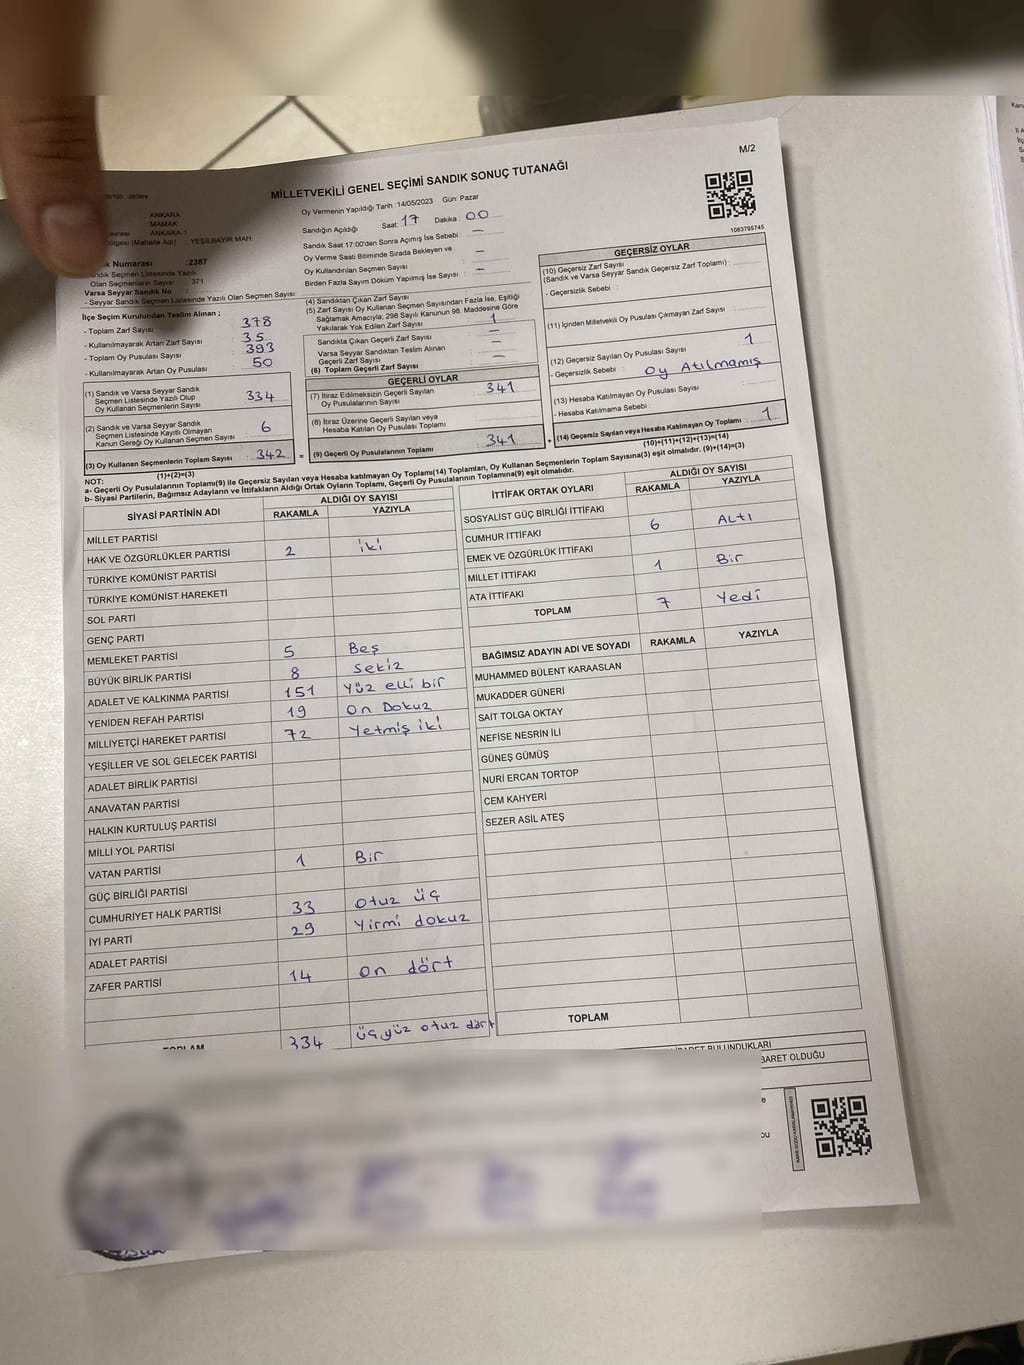 M/2
MİLLETVEKİLİ GENEL SEÇİMİ SANDIK SONUÇ TUTANAĞI
ANKARA
MAMAK
ANKARA-1
(Mahalle Adı) YEŞİLBAYIR MAH.
Numarası :2387
Sandık Seçmen Listesinde Yazılı
Olan Seçmenlerin Sayısı : 371
Varsa Seyyar Sandık No :
- Seyyar Sandık Seçmen Listesinde Yazılı Olan Seçmen Sayısı:
Oy Vermenin Yapıldığı Tarih : 14/05/2023 Gün: Pazar
Sandığın Açıldığı Saat: 17 Dakika : 00
Sandık Saat 17:00'den Sonra Açılmış İse Sebebi : —
Oy Verme Saati Bitiminde Sırada Bekleyen ve
Oy Kullandırılan Seçmen Sayısı : —
Birden Fazla Sayım Döküm Yapılmış İse Sayısı : —
1083795745
İlçe Seçim Kurulundan Teslim Alınan ;
- Toplam Zarf Sayısı : 378
- Kullanılmayarak Artan Zarf Sayısı : 35
- Toplam Oy Pusulası Sayısı : 393
- Kullanılmayarak Artan Oy Pusulası : 50
(1) Sandık ve Varsa Seyyar Sandık
Seçmen Listesinde Yazılı Olup
Oy Kullanan Seçmenlerin Sayısı : 334
(2) Sandık ve Varsa Seyyar Sandık
Seçmen Listesinde Kayıtlı Olmayan
Kanun Gereği Oy Kullanan Seçmen Sayısı : 6
(3) Oy Kullanan Seçmenlerin Toplam Sayısı : 342
(1)+(2)=(3)
(4) Sandıktan Çıkan Zarf Sayısı :
(5) Zarf Sayısı Oy Kullanan Seçmen Sayısından Fazla İse, Eşitliği
Sağlamak Amacıyla; 298 Sayılı Kanunun 98. Maddesine Göre
Yakılarak Yok Edilen Zarf Sayısı : 1
Sandıkta Çıkan Geçerli Zarf Sayısı : —
Varsa Seyyar Sandıktan Teslim Alınan
Geçerli Zarf Sayısı : —
(6) Toplam Geçerli Zarf Sayısı : —
GEÇERLİ OYLAR
(7) İtiraz Edilmeksizin Geçerli Sayılan
Oy Pusulalarının Sayısı : 341
(8) İtiraz Üzerine Geçerli Sayılan veya
Hesaba Katılan Oy Pusulası Toplamı :
(9) Geçerli Oy Pusulalarının Toplamı : 341
GEÇERSİZ OYLAR
(10) Geçersiz Zarf Sayısı
(Sandık ve Varsa Seyyar Sandık Geçersiz Zarf Toplamı) :
- Geçersizlik Sebebi :
(11) İçinden Milletvekili Oy Pusulası Çıkmayan Zarf Sayısı :
(12) Geçersiz Sayılan Oy Pusulası Sayısı : 1
- Geçersizlik Sebebi : Oy Atılmamış
(13) Hesaba Katılmayan Oy Pusulası Sayısı :
- Hesaba Katılmama Sebebi :
(14) Geçersiz Sayılan veya Hesaba Katılmayan Oy Toplamı : 1
(10)+(11)+(12)+(13)=(14)
NOT:
a- Geçerli Oy Pusulalarının Toplamı(9) ile Geçersiz Sayılan veya Hesaba katılmayan Oy Toplamı(14) Toplamları, Oy Kullanan Seçmenlerin Toplam Sayısına(3) eşit olmalıdır. (9)+(14)=(3)
b- Siyasi Partilerin, Bağımsız Adayların ve İttifakların Aldığı Ortak Oyların Toplamı, Geçerli Oy Pusulalarının Toplamına(9) eşit olmalıdır.
SİYASİ PARTİNİN ADI ALDIĞI OY SAYISI
RAKAMLA YAZIYLA
MİLLET PARTİSİ
HAK VE ÖZGÜRLÜKLER PARTİSİ 2 iki
TÜRKİYE KOMÜNİST PARTİSİ
TÜRKİYE KOMÜNİST HAREKETİ
SOL PARTİ
GENÇ PARTİ
MEMLEKET PARTİSİ 5 Beş
BÜYÜK BİRLİK PARTİSİ 8 Sekiz
ADALET VE KALKINMA PARTİSİ 151 Yüz elli bir
YENİDEN REFAH PARTİSİ 19 On Dokuz
MİLLİYETÇİ HAREKET PARTİSİ 72 Yetmiş iki
YEŞİLLER VE SOL GELECEK PARTİSİ
ADALET BİRLİK PARTİSİ
ANAVATAN PARTİSİ
HALKIN KURTULUŞ PARTİSİ
MİLLİ YOL PARTİSİ
VATAN PARTİSİ 1 Bir
GÜÇ BİRLİĞİ PARTİSİ
CUMHURİYET HALK PARTİSİ 33 Otuz üç
İYİ PARTİ 29 Yirmi dokuz
ADALET PARTİSİ
ZAFER PARTİSİ 14 On dört
TOPLAM 334 üç yüz otuz dört
İTTİFAK ORTAK OYLARI ALDIĞI OY SAYISI
RAKAMLA YAZIYLA
SOSYALİST GÜÇ BİRLİĞİ İTTİFAKI
CUMHUR İTTİFAKI 6 Altı
EMEK VE ÖZGÜRLÜK İTTİFAKI
MİLLET İTTİFAKI 1 Bir
ATA İTTİFAKI
TOPLAM 7 Yedi
BAĞIMSIZ ADAYIN ADI VE SOYADI RAKAMLA YAZIYLA
MUHAMMED BÜLENT KARAASLAN
MUKADDER GÜNERİ
SAİT TOLGA OKTAY
NEFİSE NESRİN İLİ
GÜNEŞ GÜMÜŞ
NURİ ERCAN TORTOP
CEM KAHYERİ
SEZER ASİL ATEŞ
TOPLAM
BULUNDUKLARI
BARET OLDUĞU